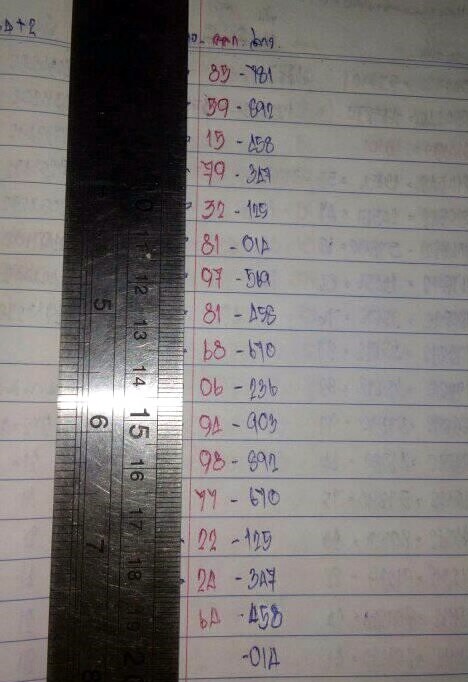 4+2
35 - 781
59 - 892
15 - 458
79 - 347
32 - 125
81 - 014
97 - 569
81 - 458
68 - 670
06 - 236
94 - 903
98 - 892
77 - 670
22 - 125
24 - 347
64 - 458
-014
10
11
12
13
14
15
16
17
18
19
20
5
6
7
8